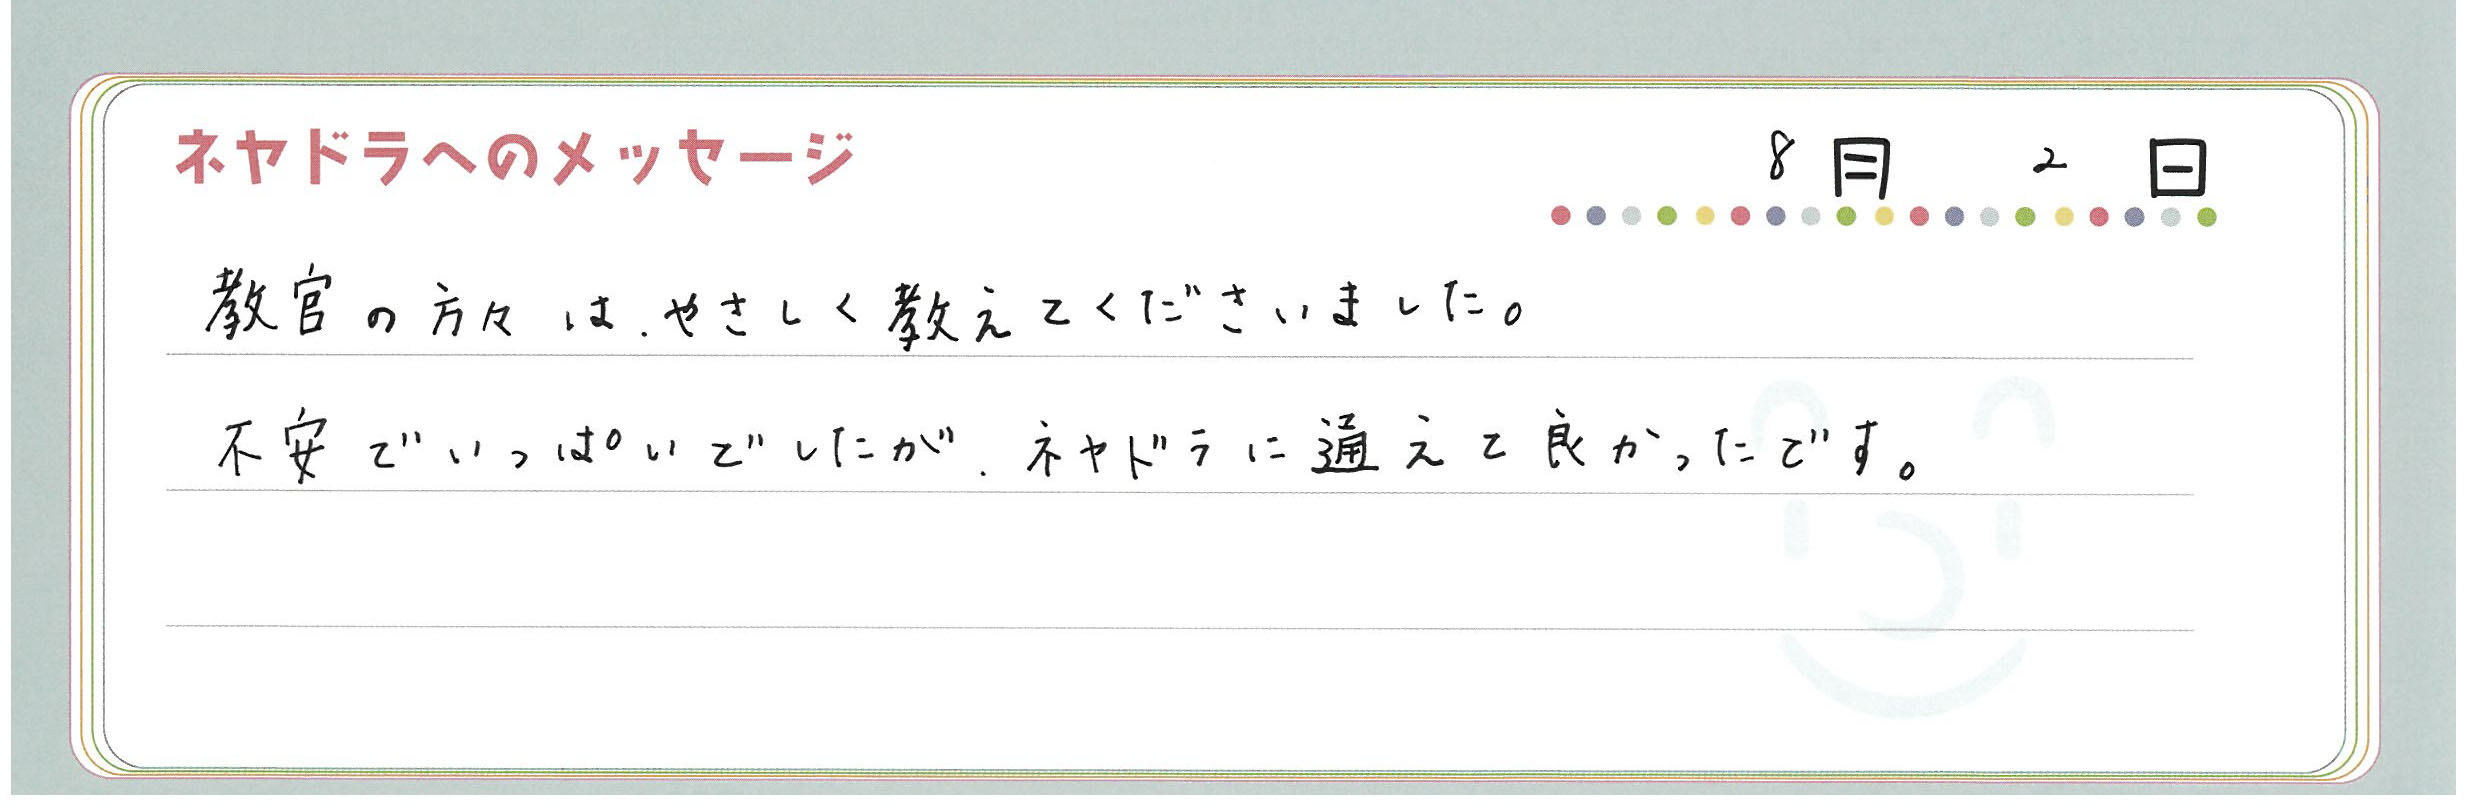 ネヤドラへのメッセージ 8月 2日
教官の方々は、やさしく教えてくださいました。
不安でいっぱいでしたが、ネヤドラに通えて良かったです。